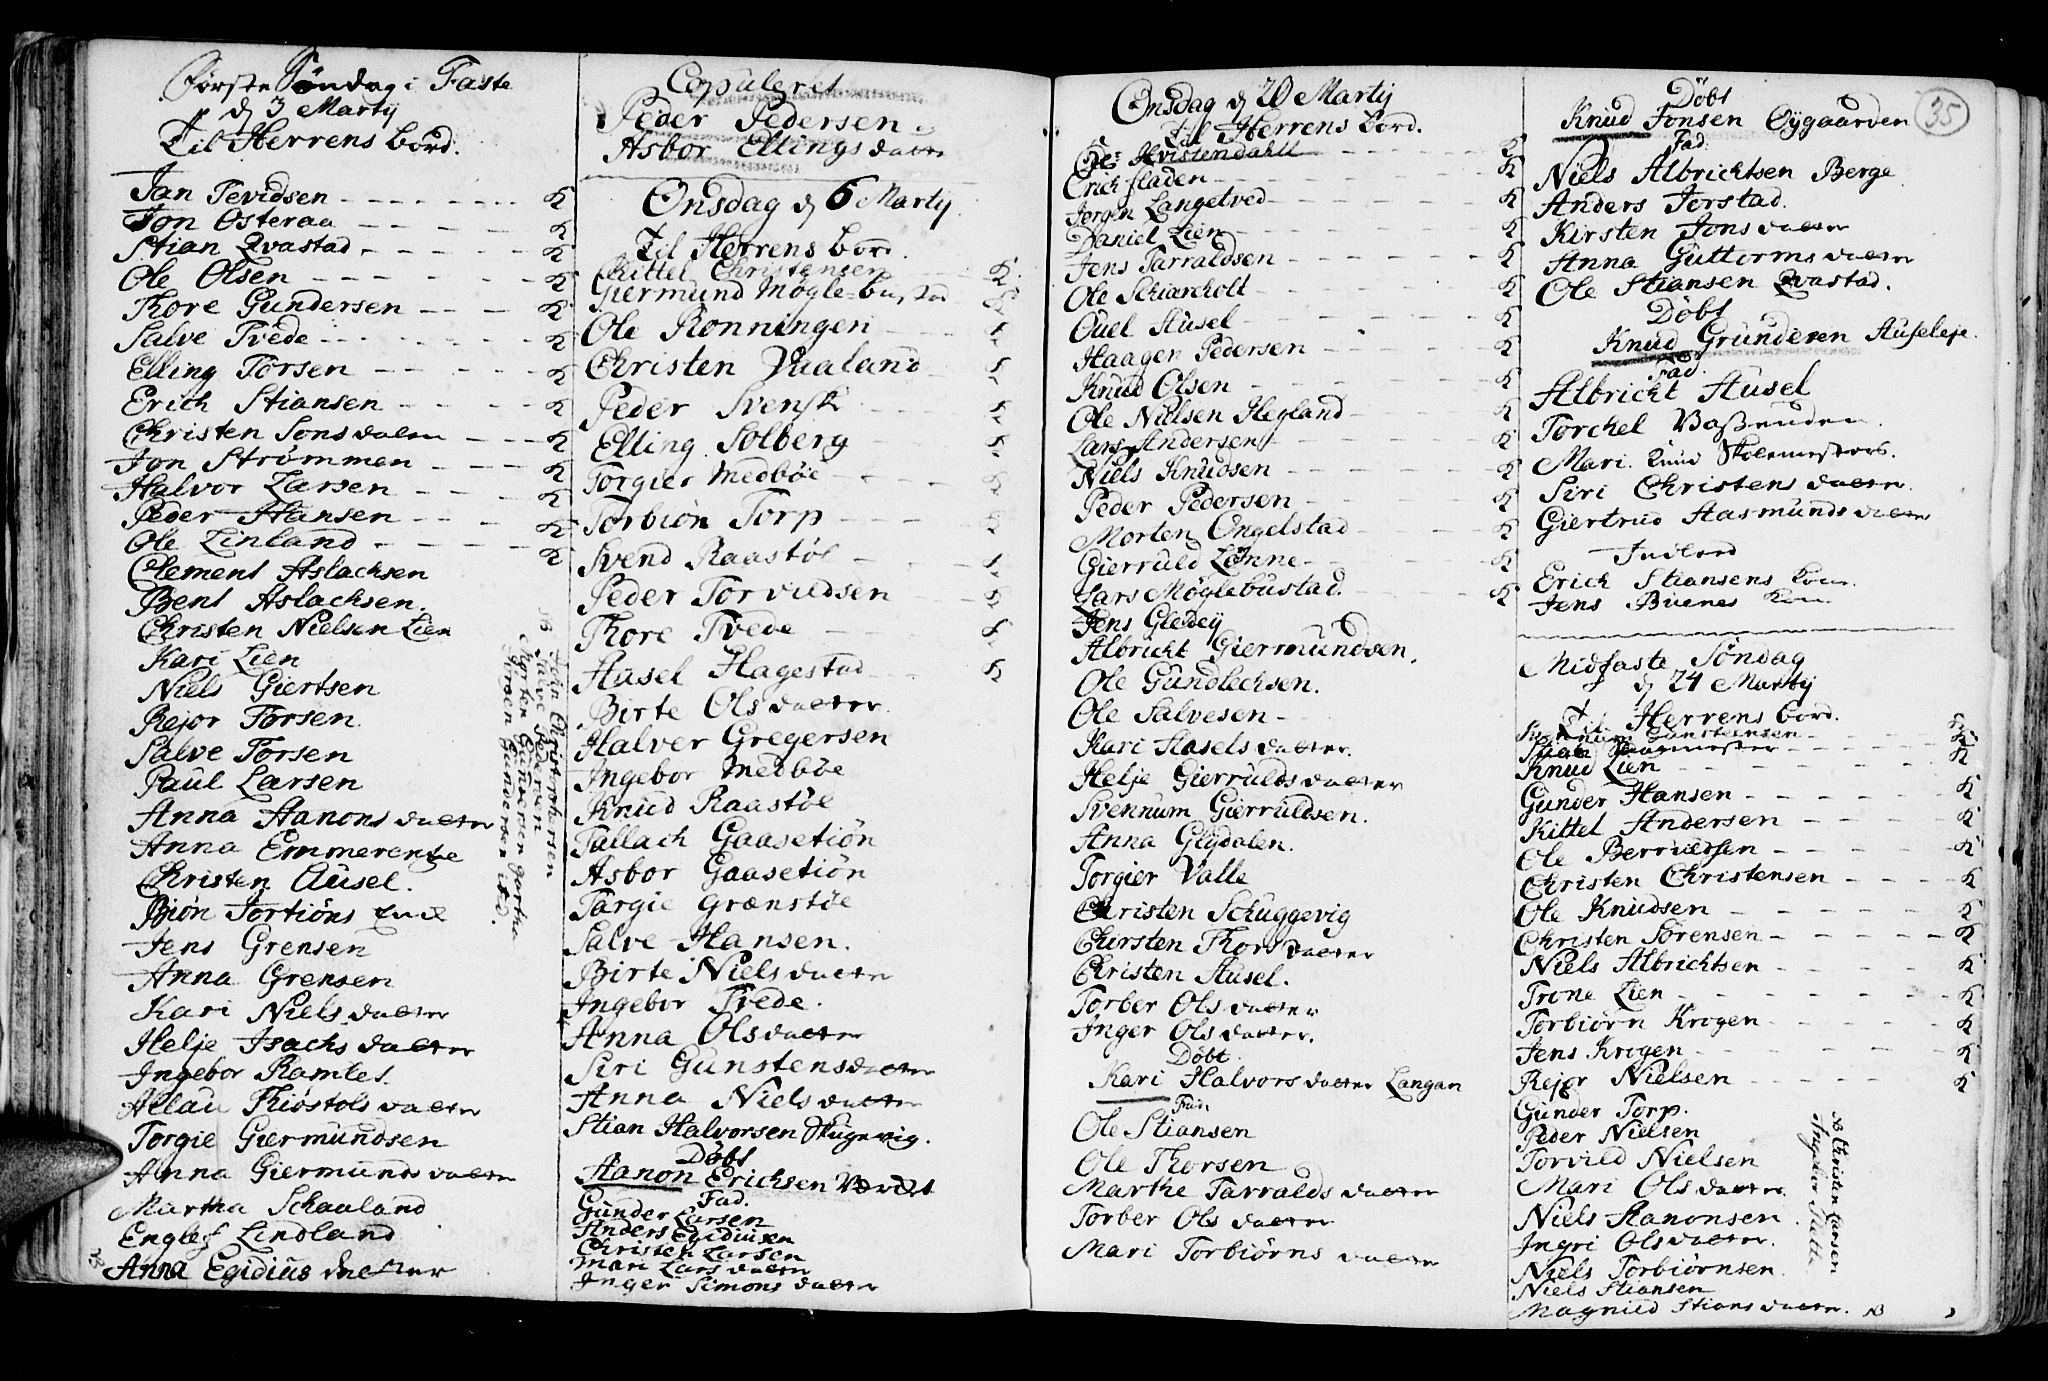 Første Søndag i Faste
d 3 Martij
Til Herrens bord.
Jan Tevidsen K
Jon Osteraa K
Stian Qvastad K
Ole Olsen K
Thore Gundersen K
Salve Tvede K
Elling Torsen K
Erich Stiansen K
Christen Jons datter K
Jon Strømmen K
Halvor Larsen K
Peder Hansen K
Ole Linland K
Clemens Aslachsen
Bent Aslachsen.
Christen Nielsen Lien
Kari Lien
Niels Giertsen
Rejor Torsen
Salve Torsen
Paul Larsen
Anna Aanons datter
Anna Emmerentze
Christen Ausel.
Biøn Tortiøns
Jens Grensen
Anna Grensen
Kari Niels datter
Helje Isachs datter
Ingebor Ramles
Allau Thiøstols datter
Torgie Giermundsen
Anna Giermunds datter
Martha Schaaland
Englef Lindland
NB Anna Egidius datter
NB John Christophersen
Salve Pedersen
Morten Gundersen
Jørgen Gundersen
Copuleret
Peder Pedersen
Asbor Ellings datter
Onsdag d 6 Martij
Til Herrens bord
Kittel Christensen K
Giermund Møglebustad K
Ole Rønningen K
Christen Vualand K
Peder Svensk K
Elling Solberg K
Torgier Medbøe K
Torbiøn Torp K
Svend Raastøl K
Peder Torvildsen K
Thore Tvede K
Ausel Hagestad K
Birte Ols datter
Halver Gregersen
Ingebor Medbøe
Knud Raastøl
Tallach Gaasetiøn
Asbor Gaasetiøn
Targie Grønstøl
Salve Hansen.
Birte Niels datter
Ingebor Tvede.
Anna Ols datter
Siri Gunstens datter
Anna Niels datter
Stian Halvorsen Skugevig.
Døbt
Aanon Erichsen
Fad.
Gunder Larsen
Anders Egidiusen
Christen Larsen
Mari Lars datter
Inger Simons datter
Onsdag d 20 Martij
Til Herrens bord.
Hr: Hvistendahll K
Erich fladen K
Jørgen Langetved K
Daniel Lien K
Jens Tarraldsen K
Ole Schiærholt K
Ouel Ausel K
Haagen Pedersen K
Knud Olsen K
Ole Nielsen Hegland K
Lars Andersen K
Niels Knudsen K
Peder Pedersen K
Morten Ongelstad K
Gierruld Lønne K
Lars Møglebustad. K
Jens Gledey
Albricht Giermundsen.
Ole Gundlechsen.
Ole Salvesen
Kari Aasels datter.
Helje Gierrulds datter
Svennum Gierruldsen.
Anna Glydalen.
Torgier Valle
Christen Schuggevig
Chirsten Thors datter
Christen Ausel.
Torber Ols datter
Inger Ols datter.
Døbt
Kari Halvors datter Langan
Fad.
Ole Stiansen
Ole Thorsen
Marthe Tarralds datter
Torber Ols datter
Mari Torbiørns datter
35
Døbt
Knud Jonsen Øygaarden
Fad.
Niels Albrichtsen Berge
Anders Torstad.
Kirsten Jons datter
Anna Guttorms datter
Ole Stiansen Qvastad.
Døbt
Knud Grundesen Auseleje.
Fad.
Albricht Ausel
Torchel
Mari Knud Skolemesters.
Siri Christens datter
Giertrud Aasmunds datter
Indled
Erich Stiansens Kone.
Jens Buenes Kone
Midfaste Søndag
d 24 Martij
Til Herrens bord.
Gunstensen K
Stian K
Knud Lien K
Gunder Hansen K
Kittel Andersen K
Ole Berruldsen K
Christen Christensen K
Ole Knudsen K
Christen Sørensen K
Niels Albrichtsen K
Trone Lien K
Torbiørn Krogen K
Jens Krogen K
Rejor Nielsen K
Gunder Torp.
Peder Nielsen
Torvild Nielsen
Mari Ols datter
Niels Aanonsen
Ingri Ols datter.
Niels Torbiørnsen
Niels Stiansen
Magnild Stians datter. NB
NB Christen Larsen
Ingebor